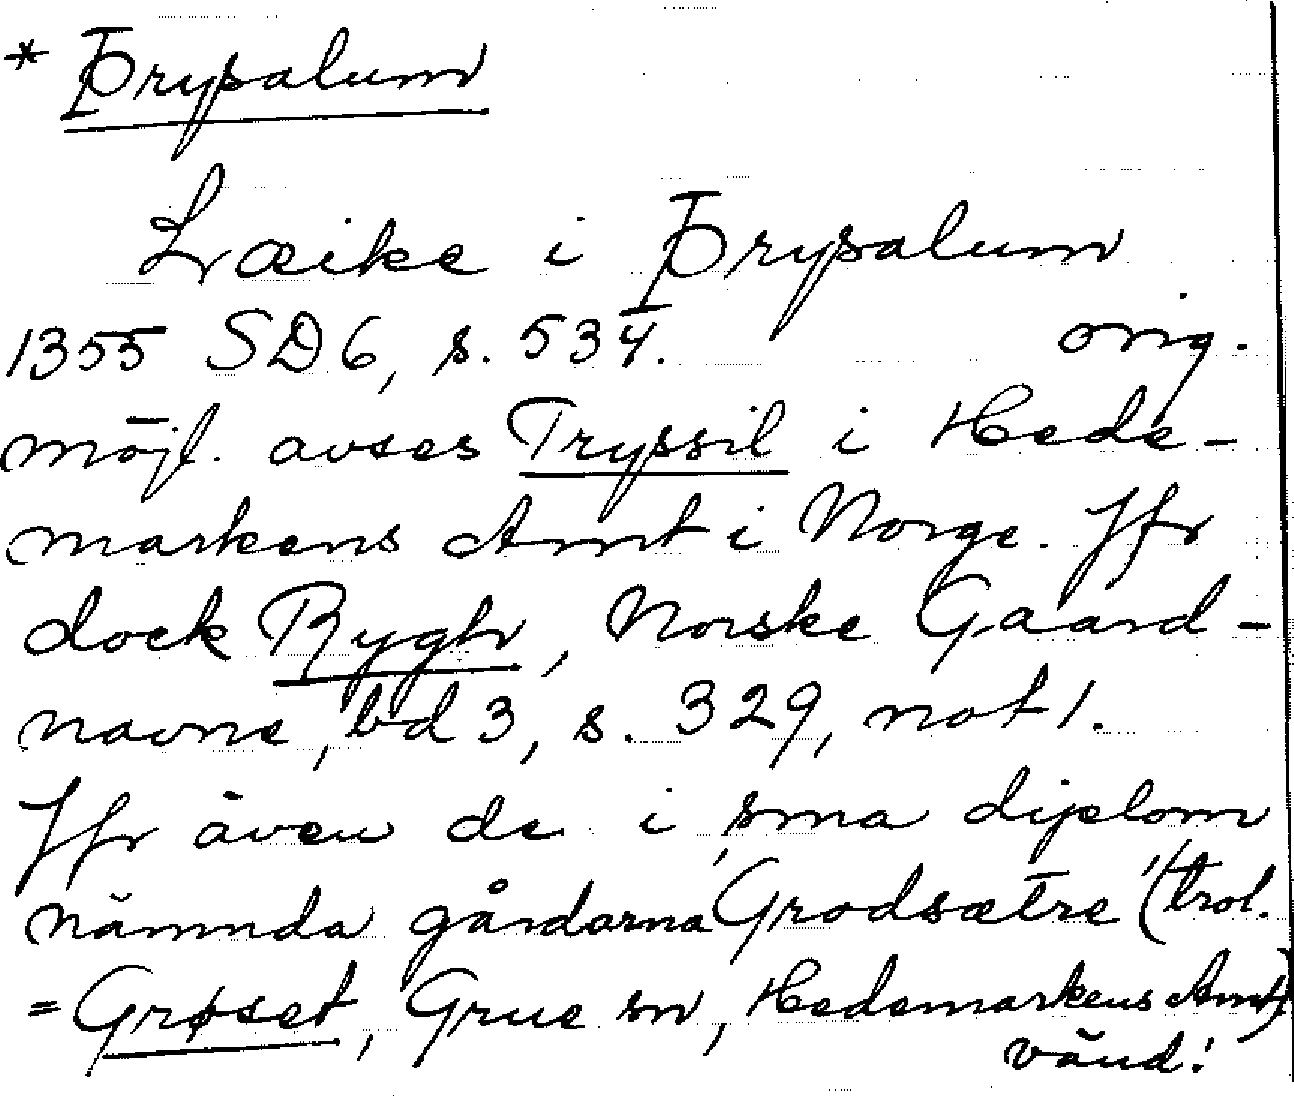 * Þrysalum
Læike i Þrysalum
1355 SD6, s. 534. orig.
möjl. avses Tryssil i Hede-
markens Amt i Norge. Jfr
dock Rygh, Norske Gaard-
navne, bd 3, s. 329, not 1.
Jfr även de i sma diplom
nämnda gårdarna 'Grodsætre' (trol.
= Grøset, Grue sn, Hedemarkens Amt)
vänd!